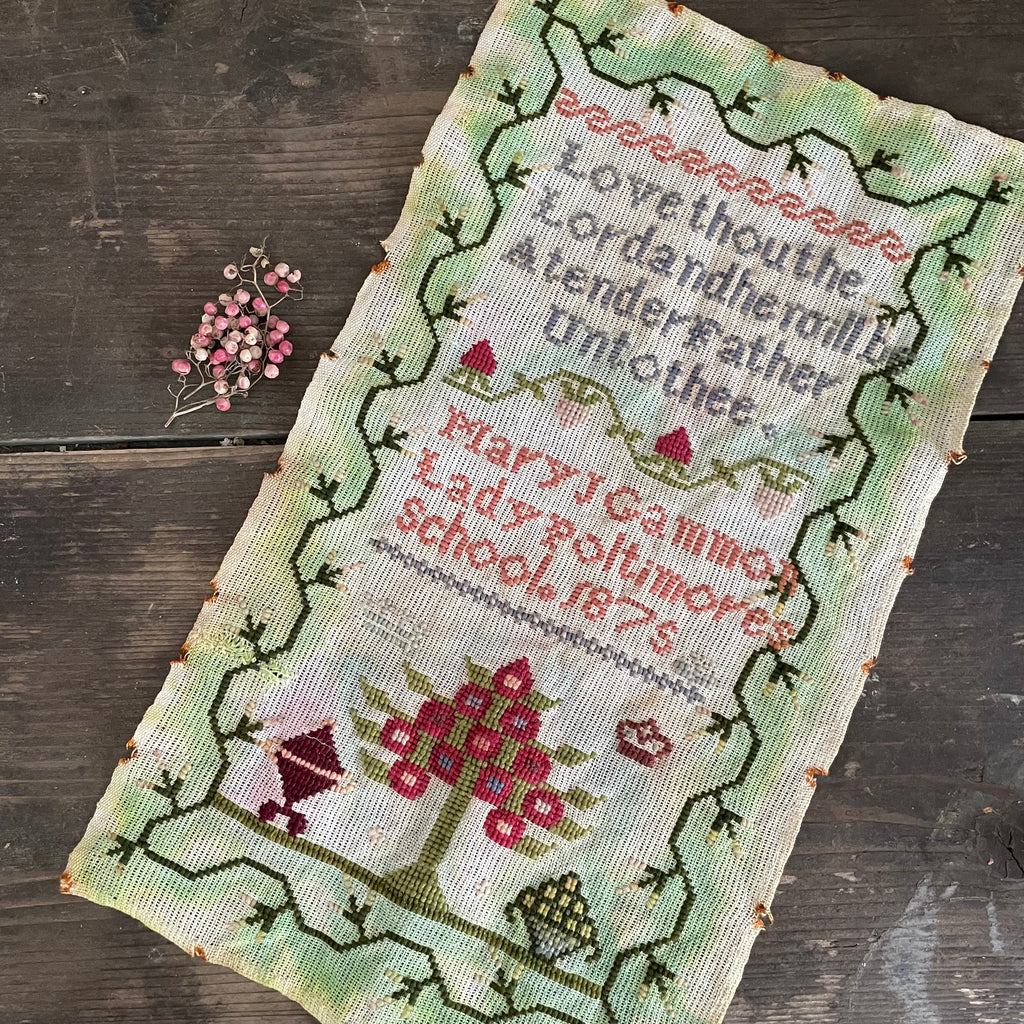 Love thou the
Lord and he will b
A tender Father
Unto thee.
Mary J Gammon
Lady polumores
school. 1875